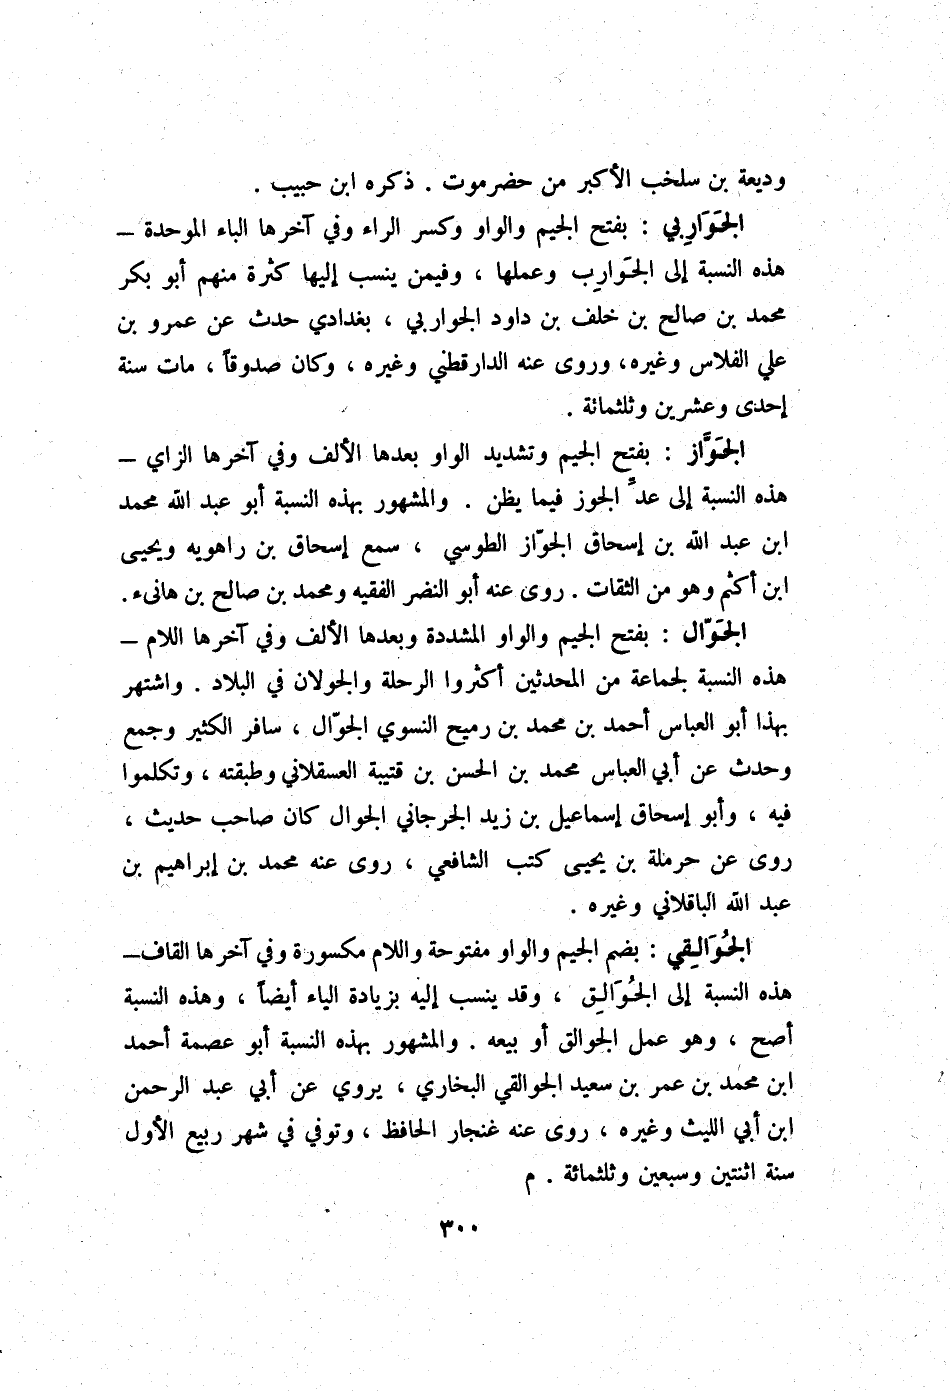 وديعة بن سلخب الأكبر من حضرموت . ذكره ابن حبيب .
الجَوَارِبي : بفتح الجيم والواو وكسر الراء وفي آخرها الباء الموحدة –
هذه النسبة إلى الجَوارِب وعملها ، وفيمن ينسب إليها كثرة منهم أبو بكر
محمد بن صالح بن خلف بن داود الجواربي ، بغدادي حدث عن عمرو بن
علي الفلاس وغيره، وروى عنه الدارقطني وغيره ، وكان صدوقاً ، مات سنة
إحدى وعشرين وثلثمائة .
الجَوَّاز : بفتح الجيم وتشديد الواو بعدها الألف وفي آخرها الزاي –
هذه النسبة إلى عدّ الجوز فيما يظن . والمشهور بهذه النسبة أبو عبد الله محمد
ابن عبد الله بن إسحاق الجوّاز الطوسي ، سمع إسحاق بن راهويه ويحيى
ابن أكثم وهو من الثقات . روى عنه أبو النضر الفقيه ومحمد بن صالح بن هانىء .
الجَوّال : بفتح الجيم والواو المشددة وبعدها الألف وفي آخرها اللام –
هذه النسبة لجماعة من المحدثين أكثروا الرحلة والجولان في البلاد . واشتهر
بهذا أبو العباس أحمد بن محمد بن رميح النسوي الجوّال ، سافر الكثير وجمع
وحدث عن أبي العباس محمد بن الحسن بن قتيبة العسقلاني وطبقته ، وتكلموا
فيه ، وأبو إسحاق إسماعيل بن زيد الجرجاني الجوال كان صاحب حديث ،
روى عن حرملة بن يحيى كتب الشافعي ، روى عنه محمد بن إبراهيم بن
عبد الله الباقلاني وغيره .
الجُوَالِقي : بضم الجيم والواو مفتوحة واللام مكسورة وفي آخرها القاف–
هذه النسبة إلى الجُوَالِق ، وقد ينسب إليه بزيادة الياء أيضاً ، وهذه النسبة
أصح ، وهو عمل الجوالق أو بيعه . والمشهور بهذه النسبة أبو عصمة أحمد
ابن محمد بن عمر بن سعيد الجوالقي البخاري ، يروي عن أبي عبد الرحمن
ابن أبي الليث وغيره ، روى عنه غنجار الحافظ ، وتوفي في شهر ربيع الأول
سنة اثنتين وسبعين وثلثمائة . م
٣٠٠